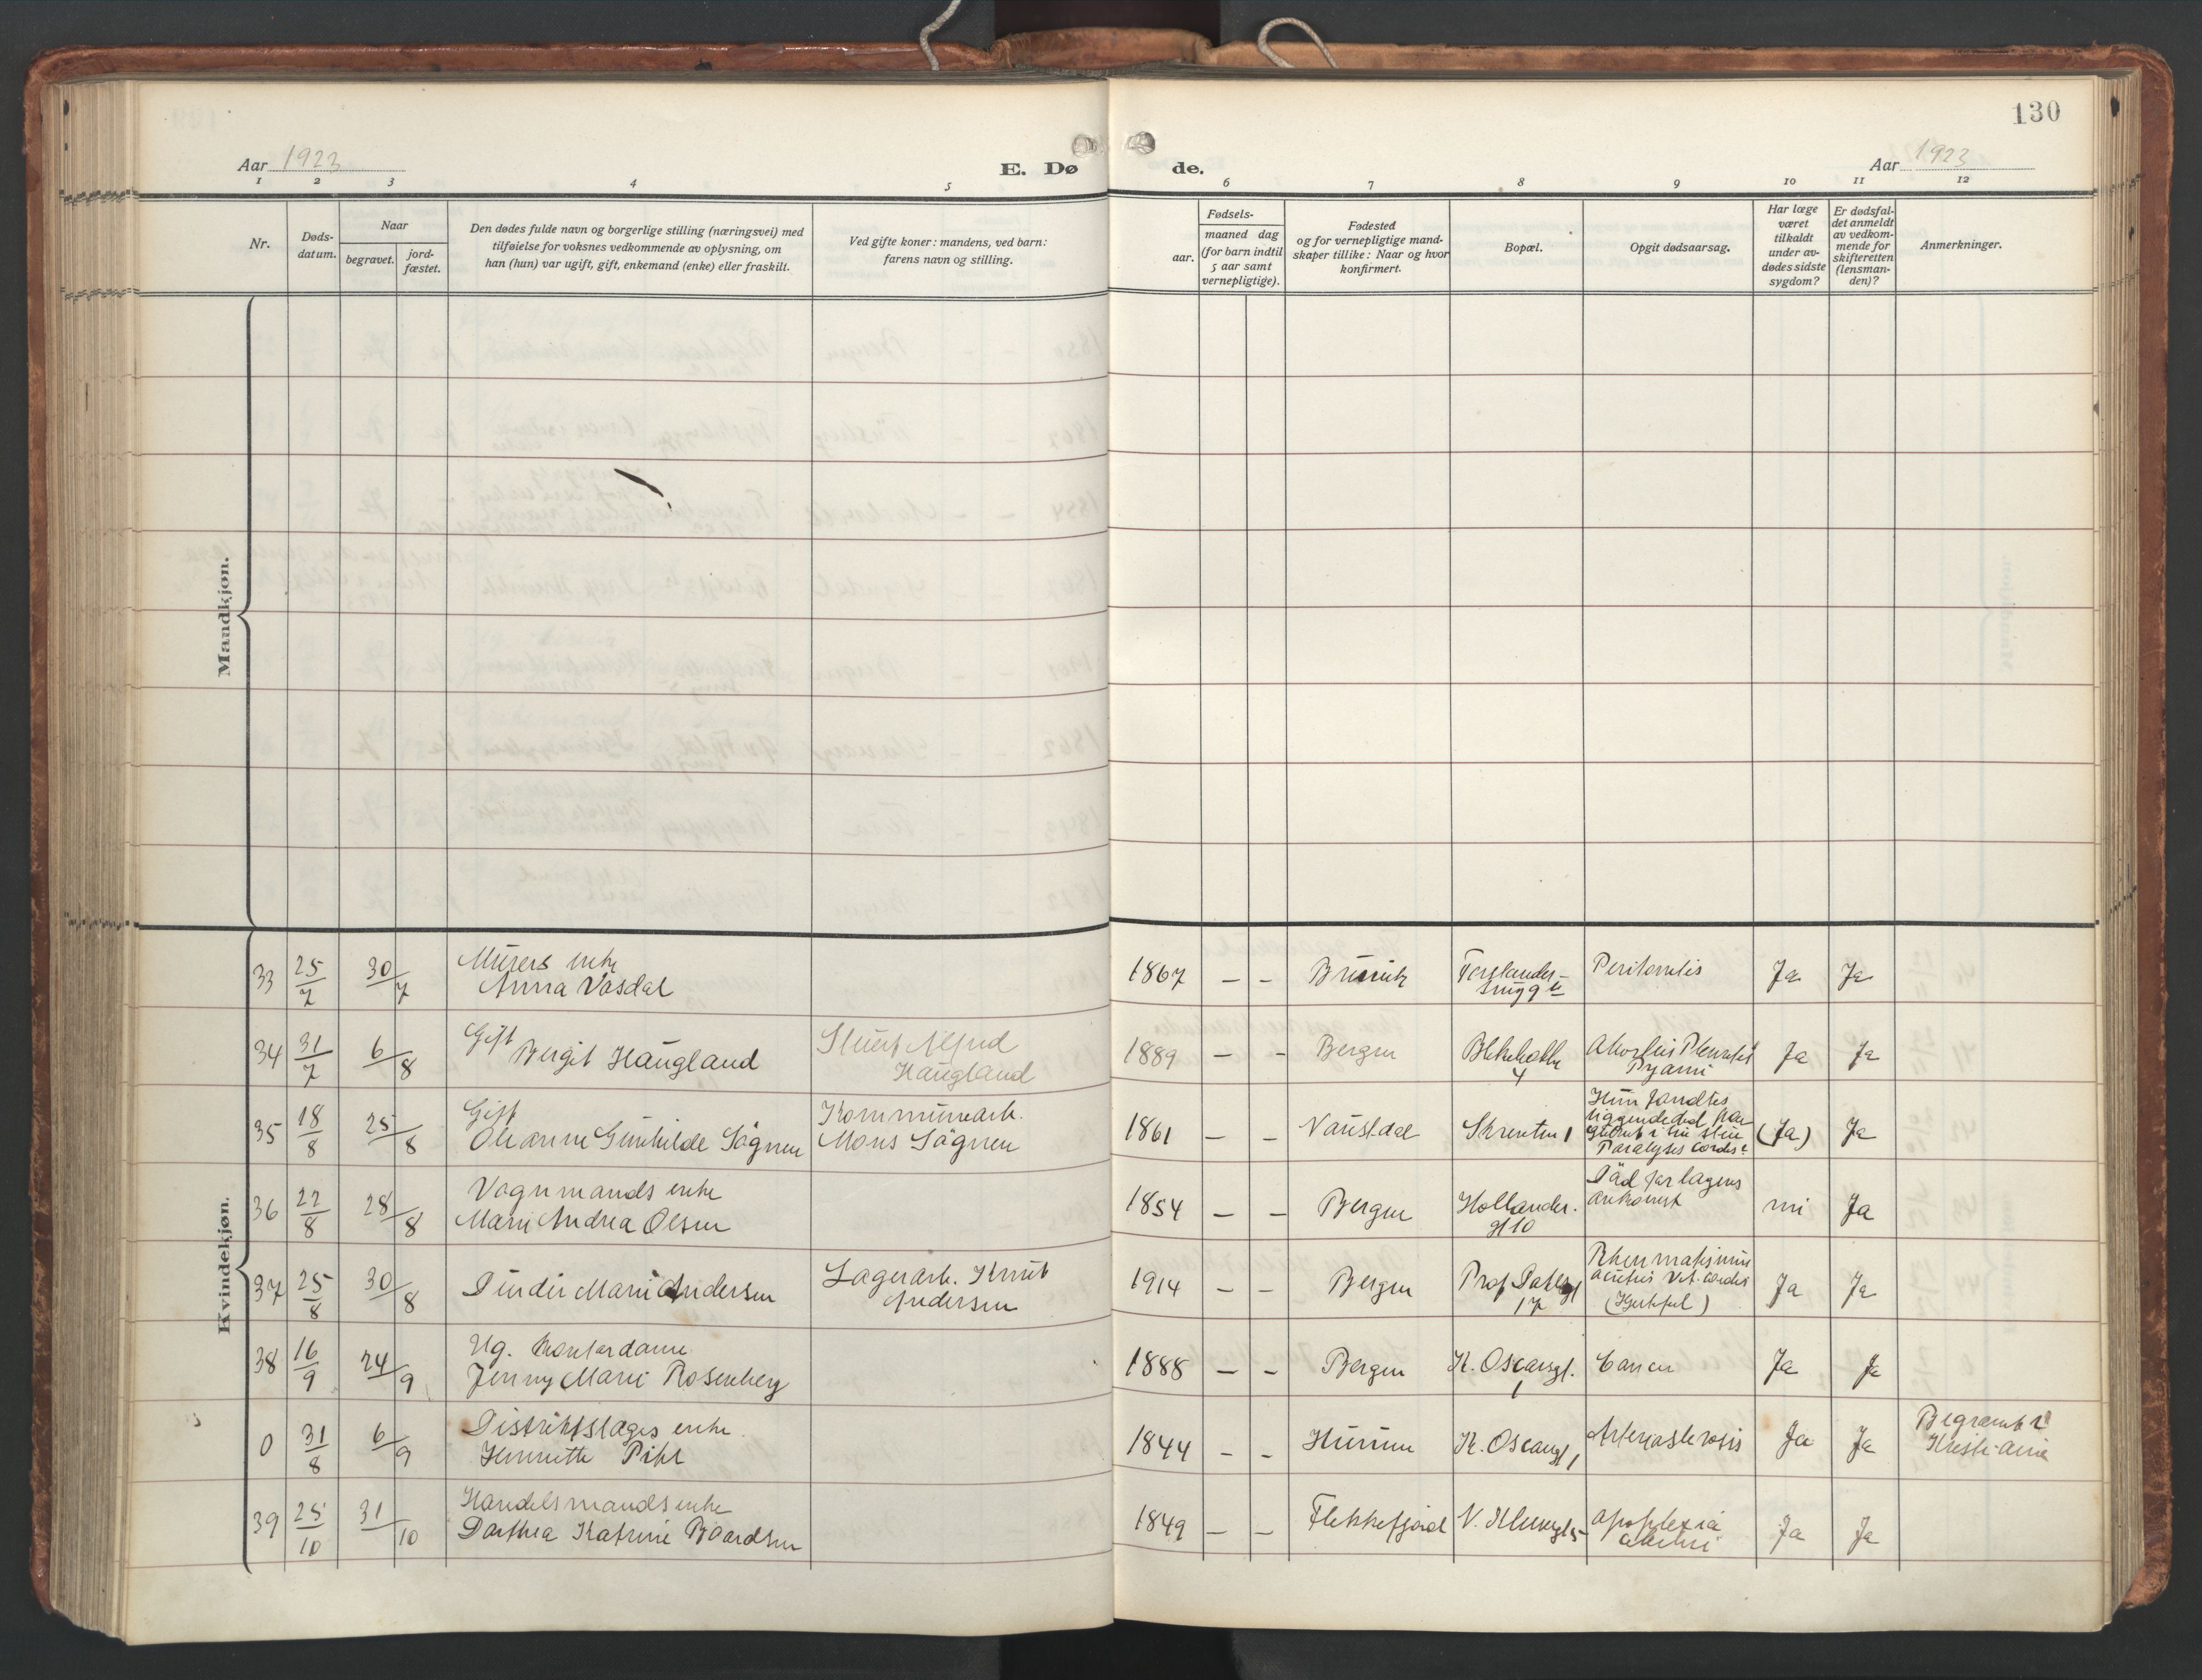 130
Aar 1923
E. Dø
de.
Aar 1923
1 2 3 4 5 6 7 8 9 10 11 12
Nr.
Døds-
datum.
Naar
begravet.
jord-
fæstet.
Den dødes fulde navn og borgerlige stilling (næringsvei) med
tilføielse for voksnes vedkommende av oplysning, om
han (hun) var ugift, gift, enkemand (enke) eller fraskilt.
Ved gifte koner: mandens, ved barn:
farens navn og stilling.
aar.
Fødsels-
maaned dag
(for barn indtil
5 aar samt
vernepligtige).
Fødested
og for vernepligtige mand-
skaper tillike: Naar og hvor
konfirmert.
Bopæl.
Opgit dødsaarsag.
Har læge
været
tilkaldt
under av-
dødes sidste
sygdom?
Er dødsfal-
det anmeldt
av vedkom-
mende for
skifteretten
(lensman-
den)?
Anmerkninger.
Mandkjøn.
Kvindekjøn.
33 25/7 30/7
Murers enke
Anna Vasdal
1867 - -
Ja Ja
34 31/7 6/8
Gift
Bergit Haugland
Alfred
Haugland
1889 - - Bergen
4
Ja Ja
35 18/8 25/8
Gift
Olianne Gunhilde Sågnen
Kommunearb.
Mons Sågnen
1861 - - Naustdal Skrenten 1
Hun fandtes
liggende död
Paralyses cordis?
(Ja) Ja
36 22/8 28/8
Vognmands enke
Marie Andrea Olsen
1854 - - Bergen Hollander.
gt 10
Död før lægens
ankomst
nei Ja
37 25/8 30/8
Marie Andersen
Lagerarb. Knut
Andersen
1914 - - Bergen Prof Dahlsgt
17
Rheumatismus
acutus Vit. cordis
(Hjertefeil)
Ja Ja
38 16/9 24/9
Ug. Kontordame
Jenny Marie Rosenberg
1888 - - Bergen K. Oscarsgt.
1
Cancer
Ja Ja
0 31/8 6/9
Distriktslæges enke
Henriette Pihl
1844 - - Hurum K. Oscarsgt 1
Ja Ja
Begravet i
Kristiania
39 25/10 31/10
Handelsmands enke
Dorthea Katrine Baardsen
1849 - - Flekkefjord
apoplexia
cerebri
Ja Ja